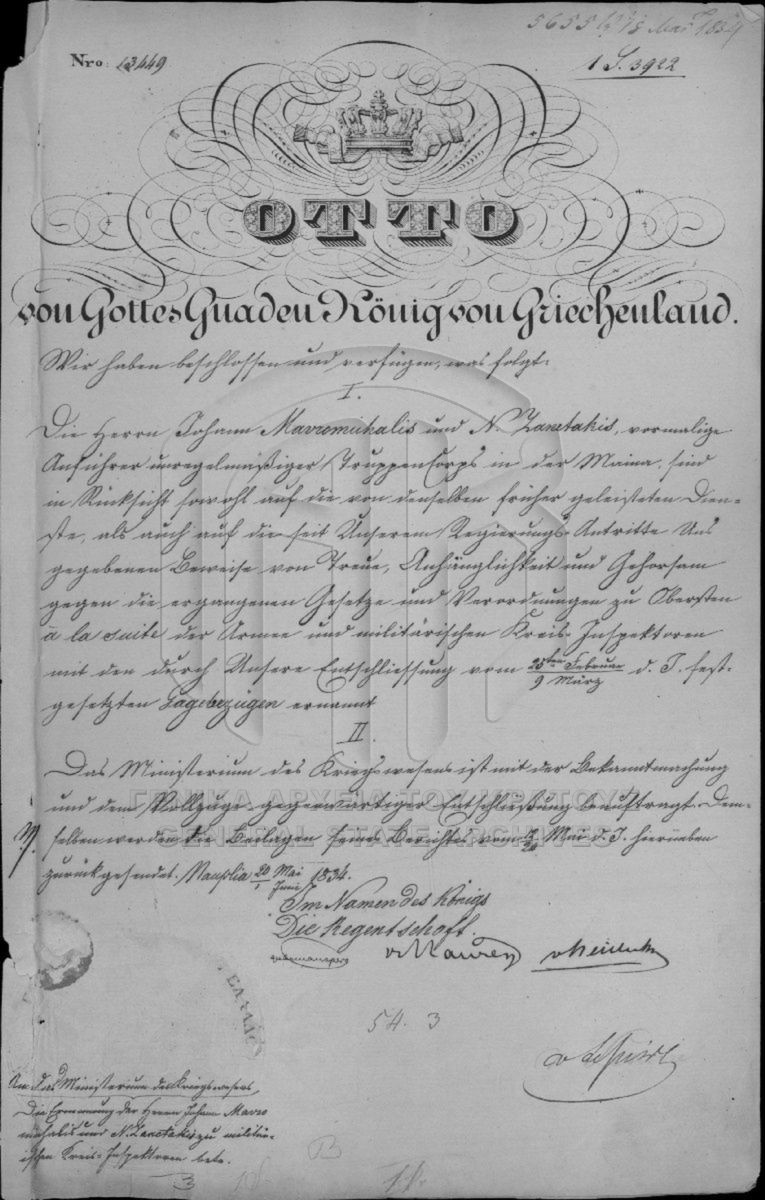 5655
Nro: 13449
1 S. 3922
OTTO
von Gottes Gnaden König von Griechenland.
Wir haben beschlossen und verfügen, was folgt:
I.
Die Herrn Johann Mavromichalis und N. Zanetakis, vormalige
Anführer unregelmäßiger Truppen Corps in der Maina, sind
in Rücksicht sowohl auf die von denselben früher geleisteten Dien-
ste, als auch auf die seit Unserem Regierungs-Antritte Uns
gegebenen Beweise von Treue, Anhänglichkeit und Gehorsam
gegen die ergangenen Gesetze und Verordnungen zu Obersten
à la suite der Armee und militärischen Kreis-Inspektoren
mit den durch Unsere Entschliessung vom 25ten Februar / 9 März d. J. fest-
gesetzten Gagebezügen ernannt
II.
Das Ministerium des Kriegswesens ist mit der Bekanntmachung
und dem Vollzuge gegenwärtiger Entschließung beauftragt. Dem-
selben werden die Beilagen seines Berichtes vom Mai d. J. hierneben
zurückgesendet. Nauplia 20 Mai / 1 Juni 1834.
Im Namen des Königs
Die Regentschaft.
v Maurer
v Heideck
54. 3
An das Ministerium des Kriegswesens,
Die Ernennung der Herrn Johann Mavro
michalis und N. Zanetakis zu militä-
rischen Kreis-Inspektoren betr.
ΓΕΝΙΚΑ ΑΡΧΕΙΑ ΤΟΥ ΚΡΑΤΟΥΣ
GENERAL STATE ARCHIVES